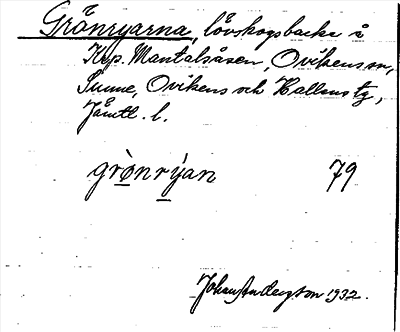 Grönryarna, lövskogsbacke å
Krp. Mantalsåsen, Ovikens sn,
Sunne, Ovikens och Hallens tg,
Jämtl. l.
grò̱nrý̱an 79
Johan Anderzson 1932.